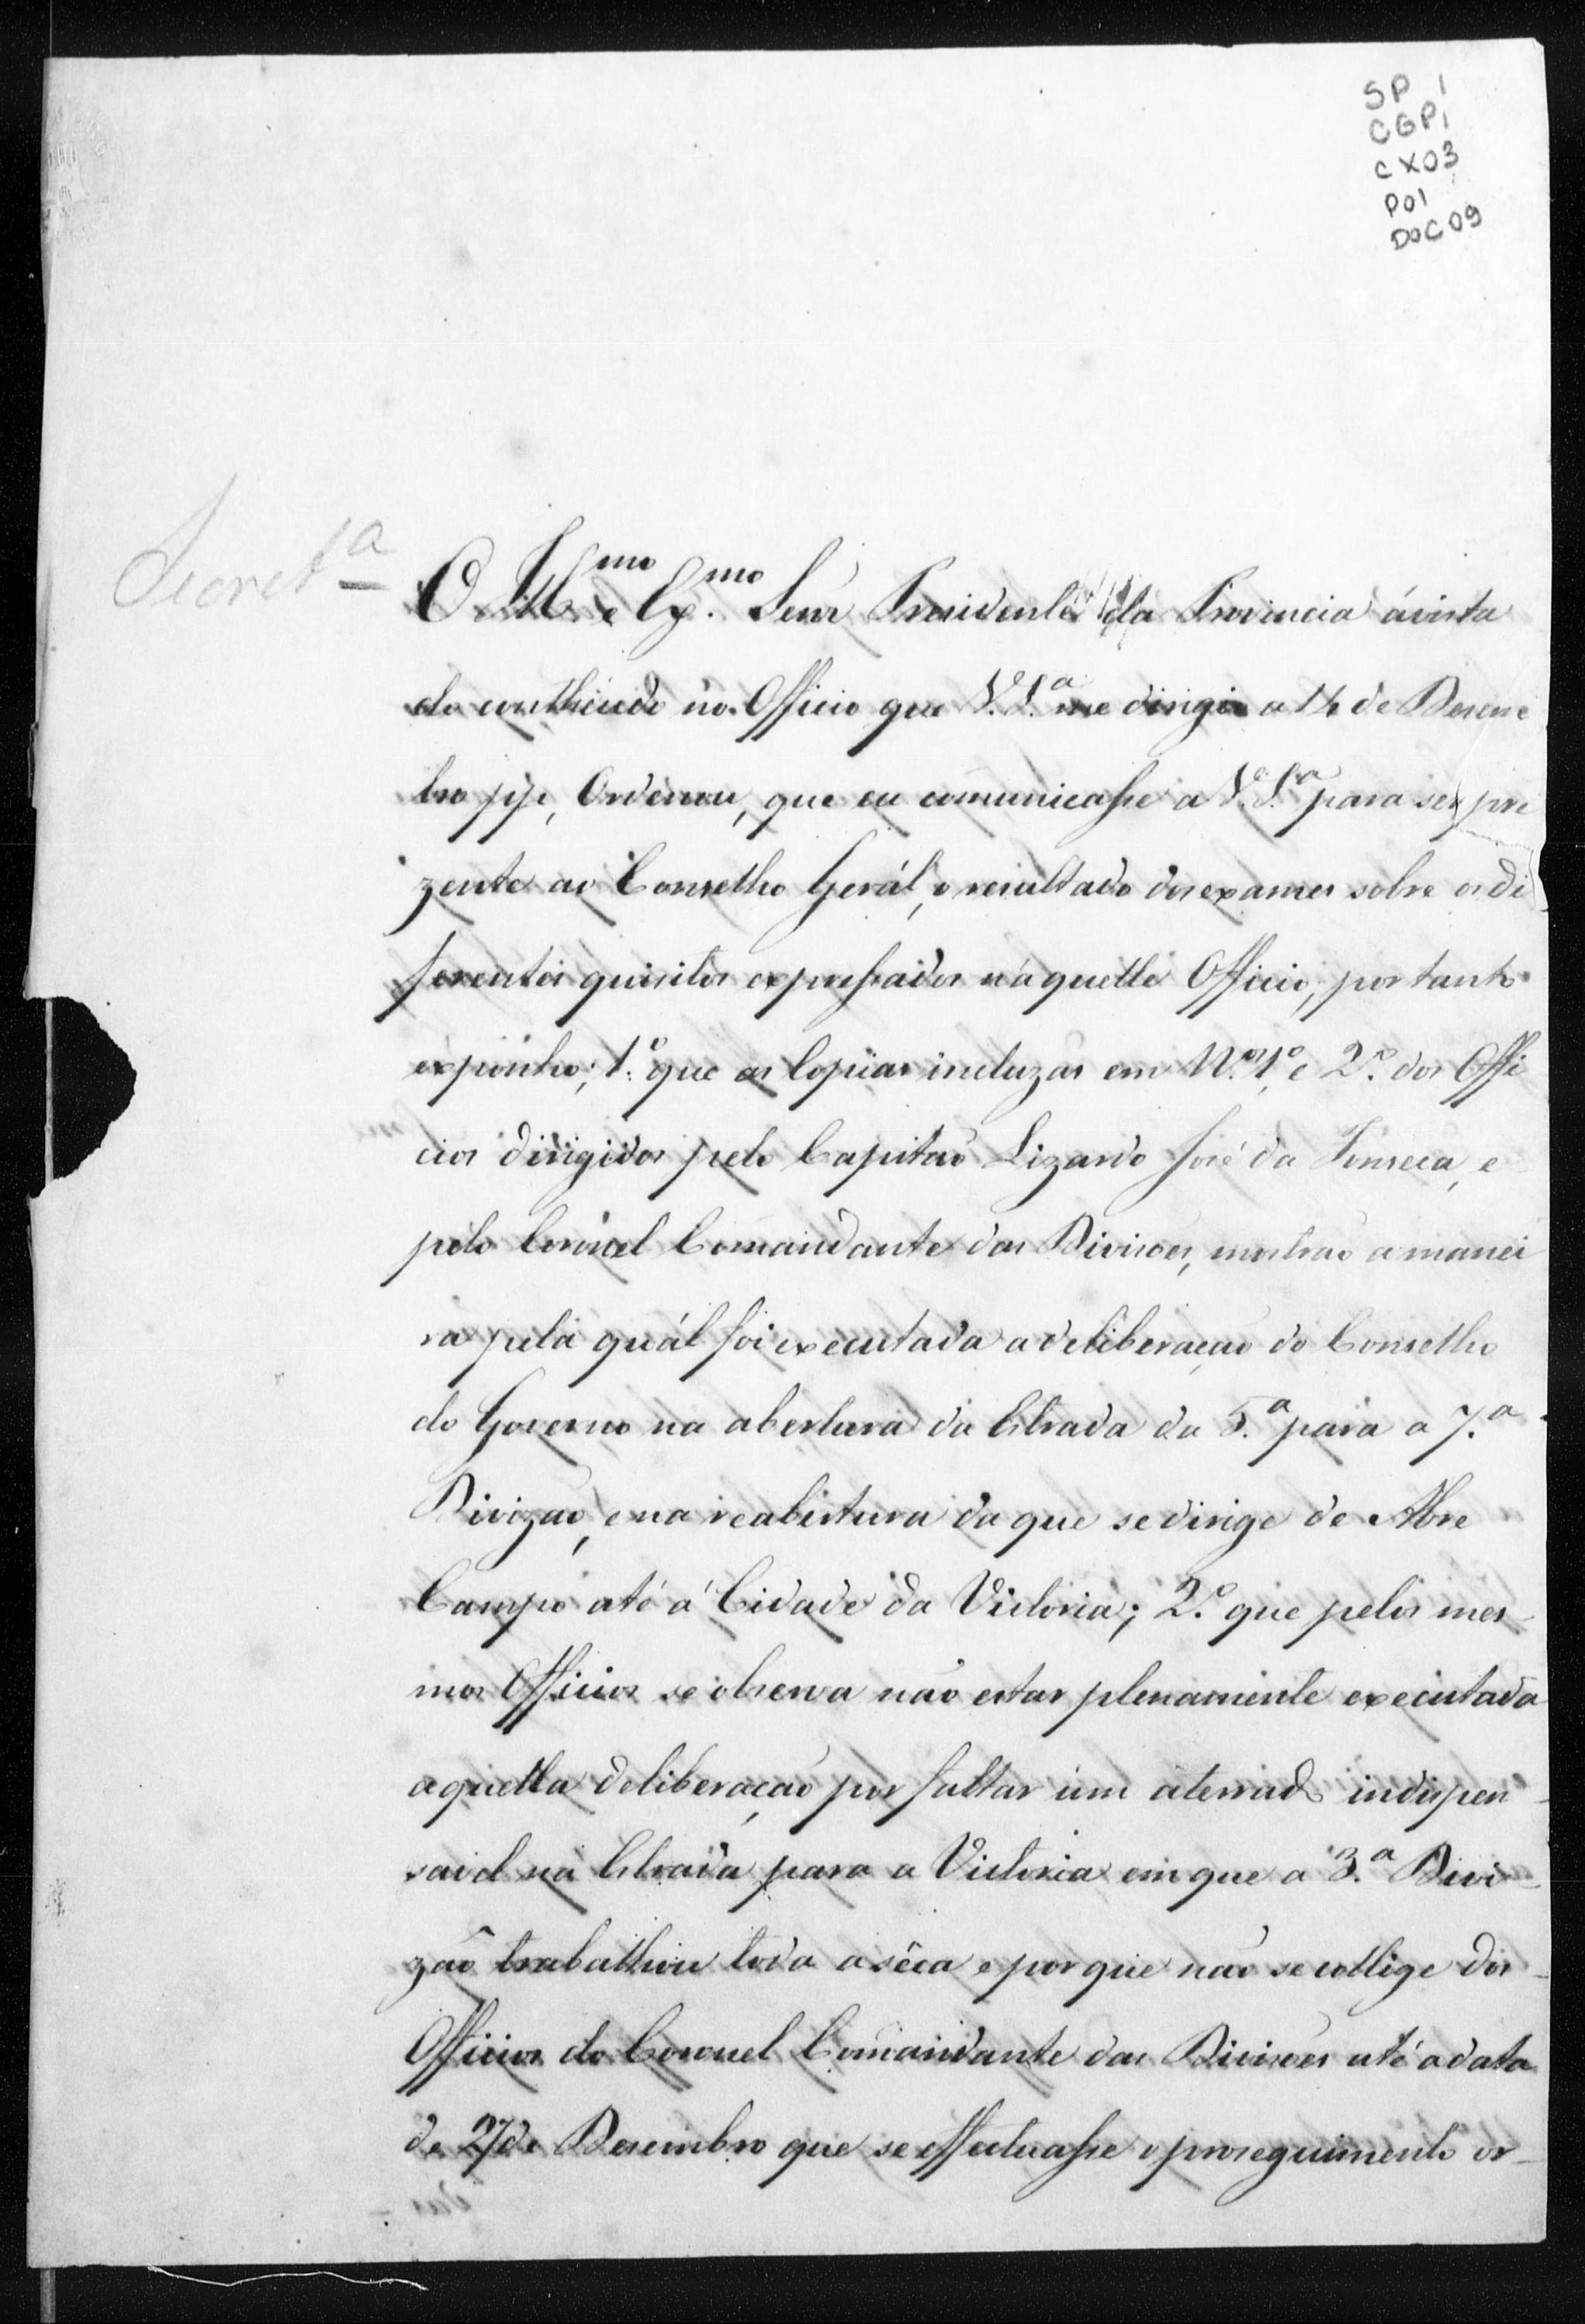 SP 1
CGP1
CX03
P01
DOC 09
Secret.ª
O Ill.mo e Ex.mo Senr Presidente da Provincia ávista
do conthéudo no Officio que V. S.ª me dirigio a 14 de Desem
bro pp., Ordenou, que eu comunicasse a V. S.ª para ser pre
zente ao Conselho Gerál, o resultado dos exames sobre os di
ferentes quisitos expressados n'aquelle Officio, por tanto
exponho; 1.º que as Copias incluzas em N.os 1.º e 2.º dos Offi
cios dirigidos pelo Capitaõ Lizardo José da Fonseca, e
pelo Coronel Comandante das Divisoẽs, mostraõ a manei
ra pela quál foi executada a deliberaçaõ do Conselho
do Governo na abertura da Estrada da 5.ª para a 7.ª
Divizaõ, e na reabertura da que se dirige de Abre
Campo até á Cidade da Victoria; 2.º que pelos mes-
mos Officios se observa naõ estar plenamente executada
aquella deliberaçaõ por faltar um aterrado indispen-
savel na Estrada para a Victoria em que a 3.ª Divi-
zaõ trabalhou toda a sêca e porque naõ se collige dos
Officios do Coronel Comandante das Divisoẽs até a data
de 27 de Desembro que se effectuasse o proseguimento or-